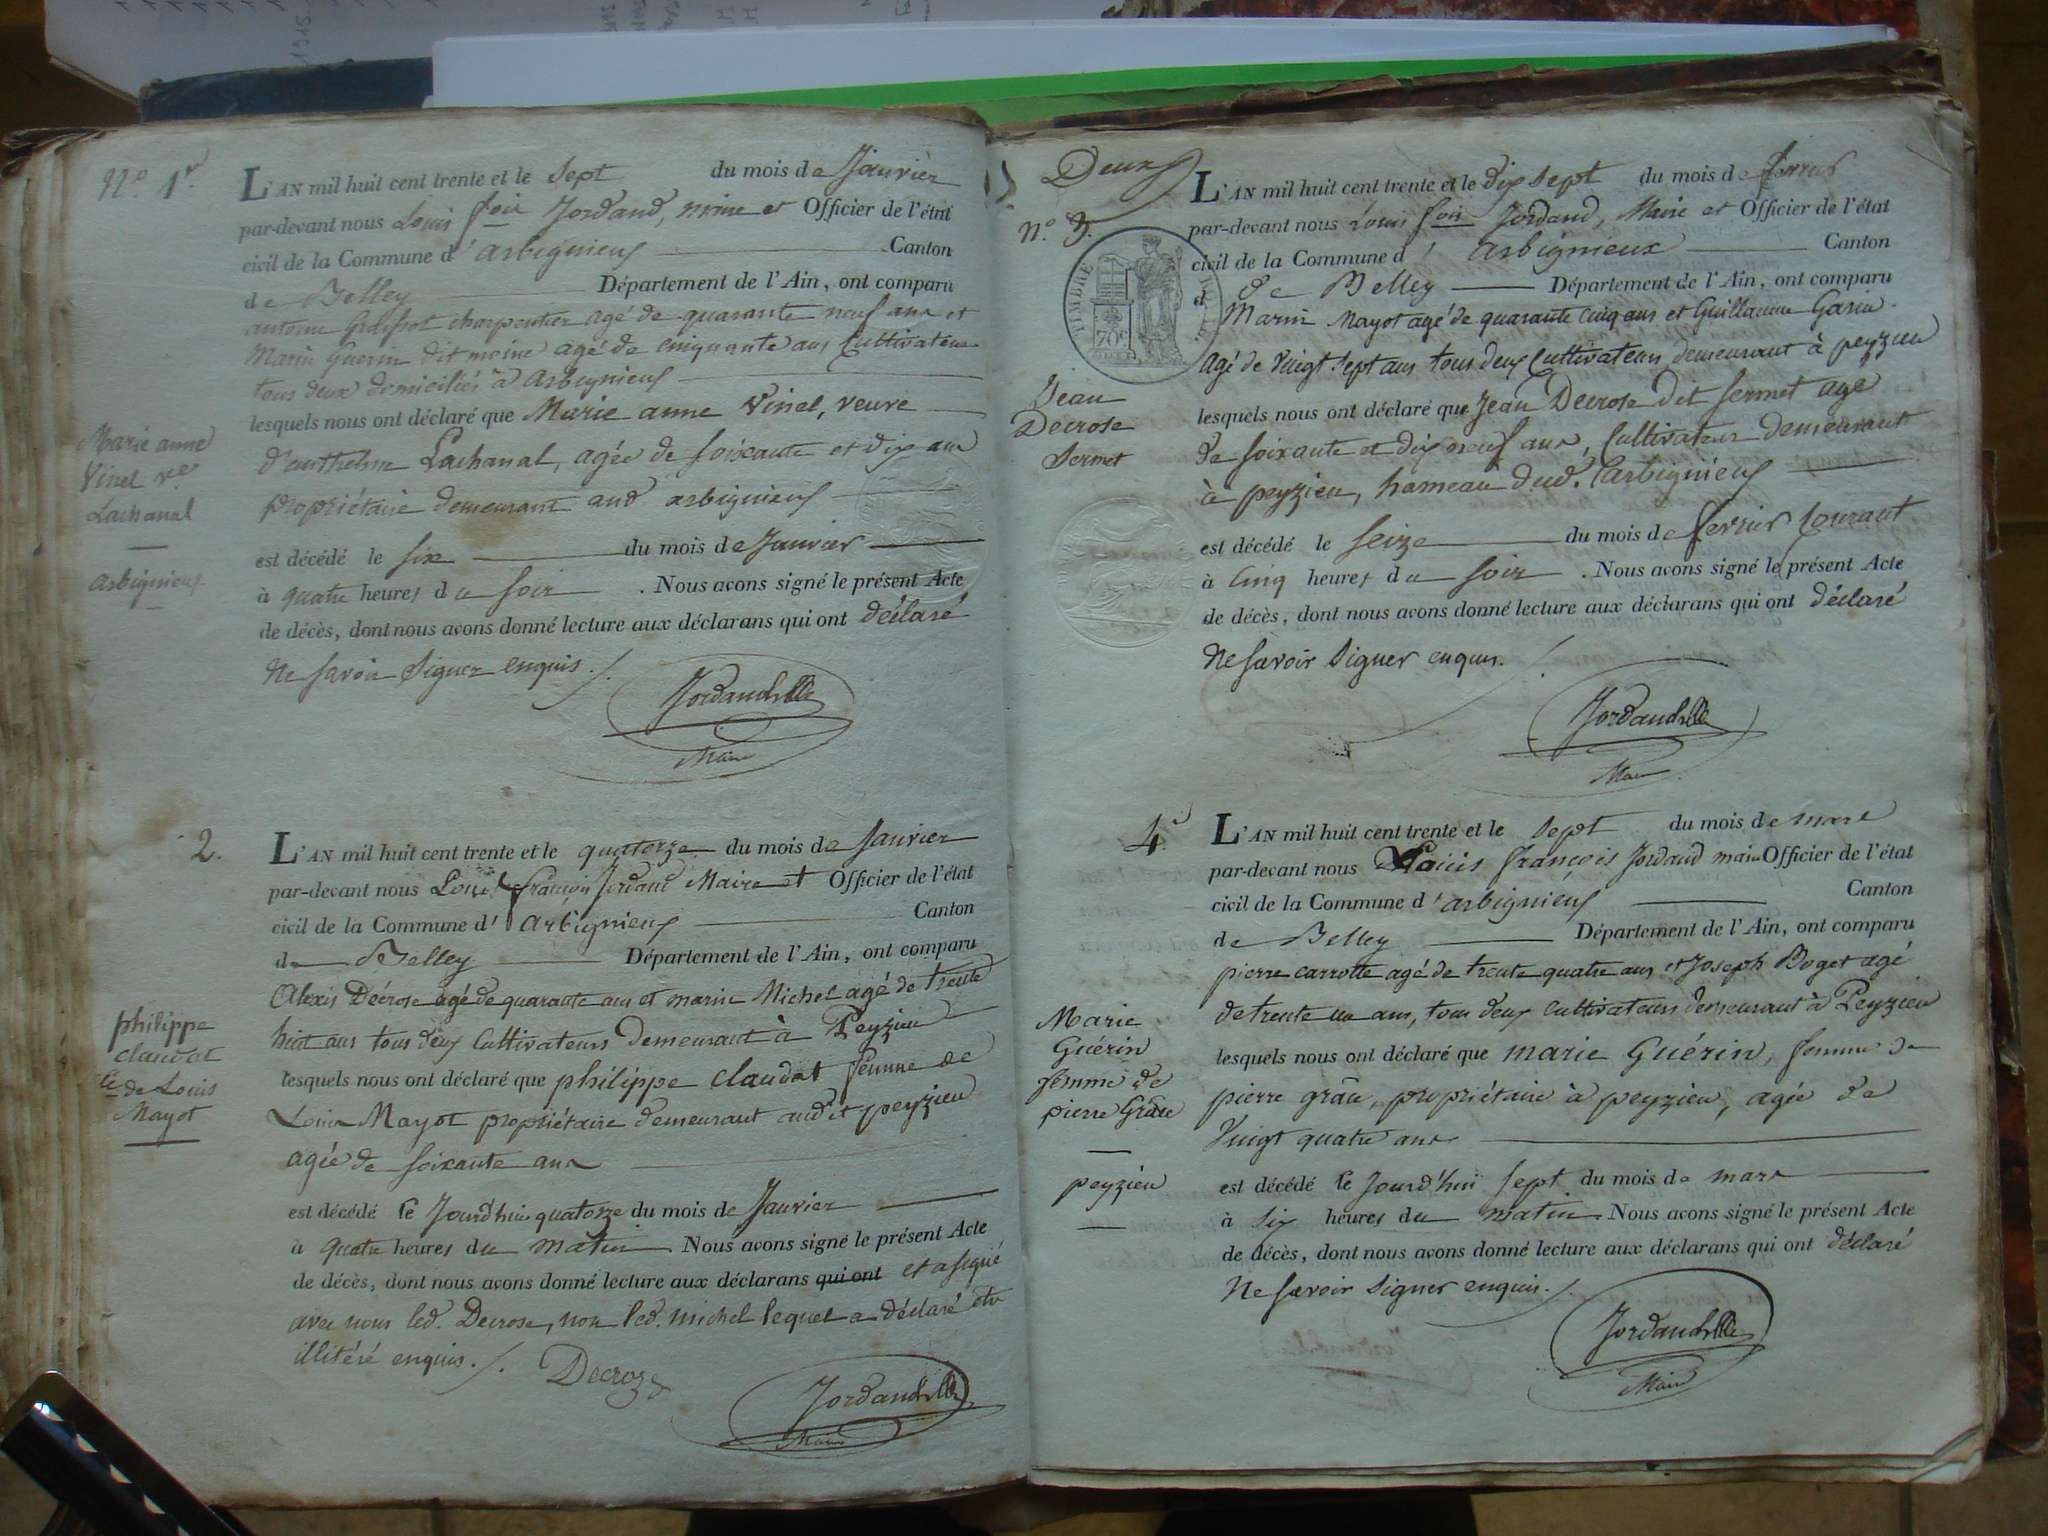 N.º 1.er
L'AN mil huit cent trente et le sept du mois de Janvier
par-devant nous Louis fois Jordand, maire et Officier de l'état
civil de la Commune d'arbignieux Canton
de Belley Département de l'Ain, ont comparu
antoine charpentier agé de quarante neuf ans et
Marin Guerin dit moine agé de cinquante ans Cultivateur
tous deux domiciliés à arbignieux
lesquels nous ont déclaré que Marie anne Vinel, veuve
d'anthelme Lachanal, agée de soixante et dix ans
propriétaire demeurant aud arbignieux
est décédé le six du mois de Janvier
à quatre heures du soir . Nous avons signé le présent Acte
de décès, dont nous avons donné lecture aux déclarans qui ont déclaré
ne savoir signer enquis ./.
Jordand
Maire
Marie anne
Vinel ve
Lachanal
arbignieux
2.
L'AN mil huit cent trente et le quatorze du mois de Janvier
par-devant nous Louis françois Jordand Maire et Officier de l'état
civil de la Commune d'arbignieux Canton
de Belley Département de l'Ain, ont comparu
Alexis Décrose agé de quarante ans et marin Michel agé de trente
huit ans tous deux Cultivateurs demeurant à Peyzieu
lesquels nous ont déclaré que philippe claudat femme de
Louis Mayot propriétaire demeurant audit peyzieu
agée de soixante ans
est décédé le Jourd'hui quatorze du mois de Janvier
à quatre heures du matin Nous avons signé le présent Acte
de décès, dont nous avons donné lecture aux déclarans qui ont et a signé
avec nous led. Decrose, non led. michel lequel a déclaré etre
illitéré enquis ./. Decroze
Jordand
Maire
philippe
claudat
de Louis
Mayot
Deux
n.º 3.
TIMBRE ROYAL
70c
L'AN mil huit cent trente et le dix sept du mois de fevrier
par-devant nous Louis fois Jordand, Maire et Officier de l'état
civil de la Commune d'arbignieux Canton
d de Belley Département de l'Ain, ont comparu
Marin Mayot agé de quarante cinq ans et Guillaume Garin
agé de Vingt sept ans tous deux Cultivateurs demeurant à peyzieu
lesquels nous ont déclaré que Jean Decrose dit sermet agé
de soixante et dix neuf ans, Cultivateur demeurant
à peyzieu, hameau dud. arbignieux
est décédé le seize du mois de fevrier Courant
à cinq heures du soir . Nous avons signé le présent Acte
de décès, dont nous avons donné lecture aux déclarans qui ont déclaré
ne savoir signer enquis. ./.
Jordand
Maire
Jean
Décrose
Sermet
4.
L'AN mil huit cent trente et le sept du mois de mars
par-devant nous Louis françois Jordand maire Officier de l'état
civil de la Commune d'arbignieux Canton
de Belley Département de l'Ain, ont comparu
pierre carrotte agé de trente quatre ans et Joseph Boget agé
de trente un ans, tous deux cultivateurs demeurant à Peyzieu
lesquels nous ont déclaré que marie Guérin, femme de
pierre grâu, propriétaire à peyzieu, agée de
Vingt quatre ans
est décédé le Jourd'hui sept du mois de mars
à six heures du matin Nous avons signé le présent Acte
de décès, dont nous avons donné lecture aux déclarans qui ont déclaré
ne savoir signer enquis ./.
Jordand
Maire
Marie
Guérin
femme de
pierre Grâu
peyzieu